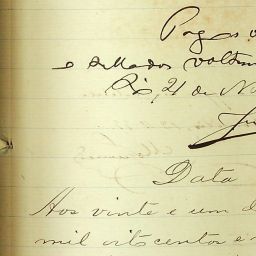 Pagos v
e sellados voltem
Rio, 21 de N
Data
Aos vinte e um d
mil oitocentos e n